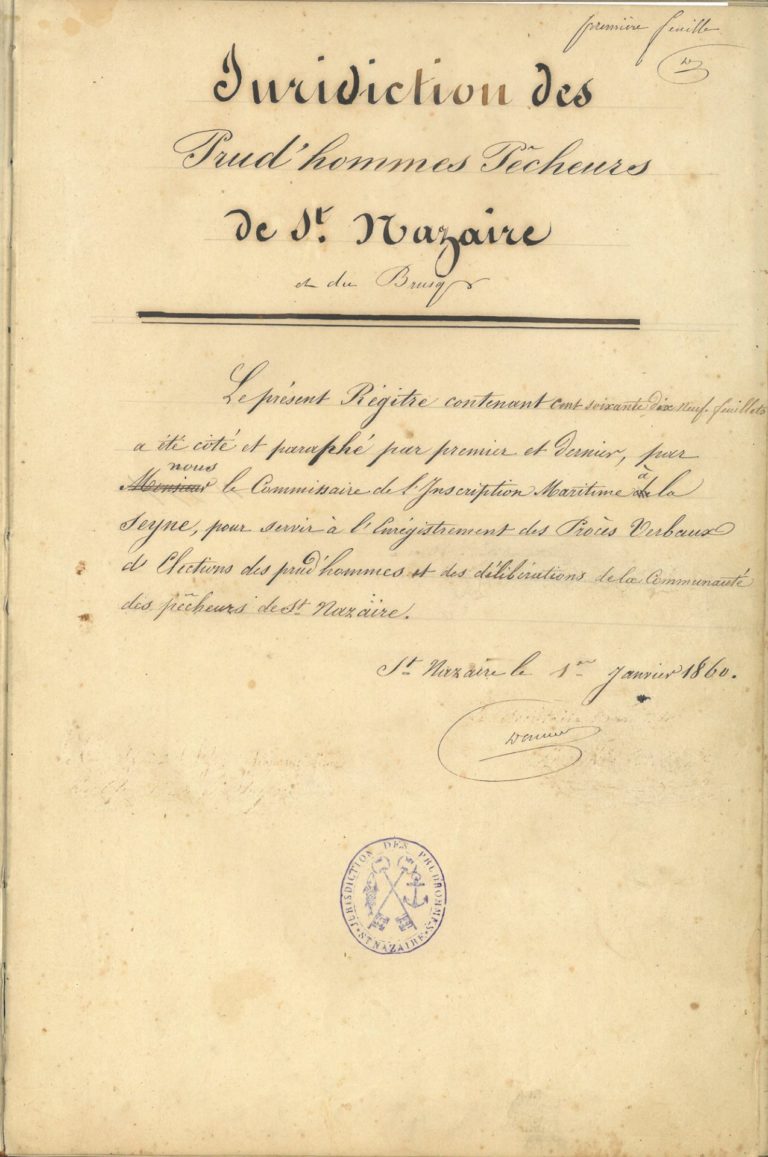 première feuille
Juridiction des
Prud'hommes Pêcheurs
de St. Nazaire
et du Brusq
Le présent Régitre contenant cent soixante dix neuf feuillets
a été côté et paraphé par premier et dernier, par
nous à
Monsieur le Commissaire de l'Inscription Maritime de la
Seyne, pour servir à l'Enrégistrement des Procès Verbaux
d'Elections des prud'hommes et des délibérations de la Communauté
des pêcheurs de St Nazaire.
St Nazaire le 1er Janvier 1860.
JURIDICTION DES PRUDHOMMES
ST NAZAIRE